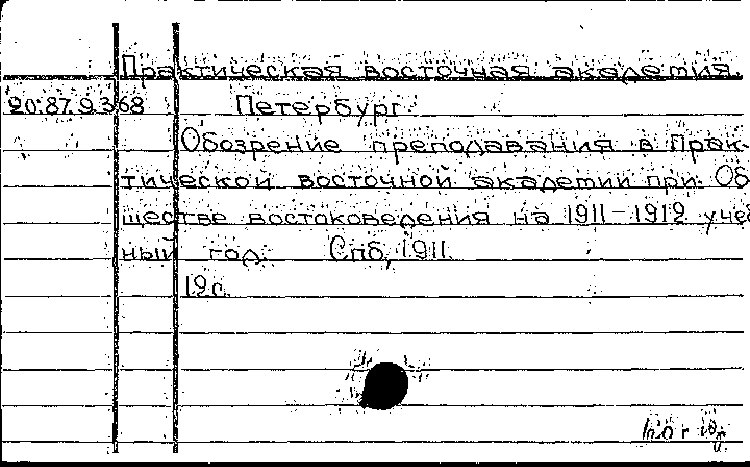 Практическая восточная академия.
20.87.9.368 Петербург.
Обозрение преподавания в Прак-
тической восточной академии при Об
ществе востоковедения на 1911-1912 учеб
ный год. Спб, 1911.
19с.